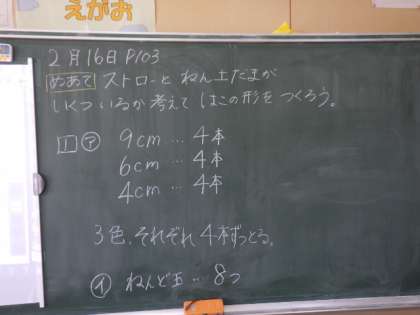 えがお
2月16日 P103
めあて ストローと ねん土だまが
いくついるか考えて はこの形をつくろう。
1 ㋐ 9cm … 4本
6cm … 4本
4cm … 4本
3色、それぞれ4本ずつとる。
㋑ ねんど玉 … 8つ